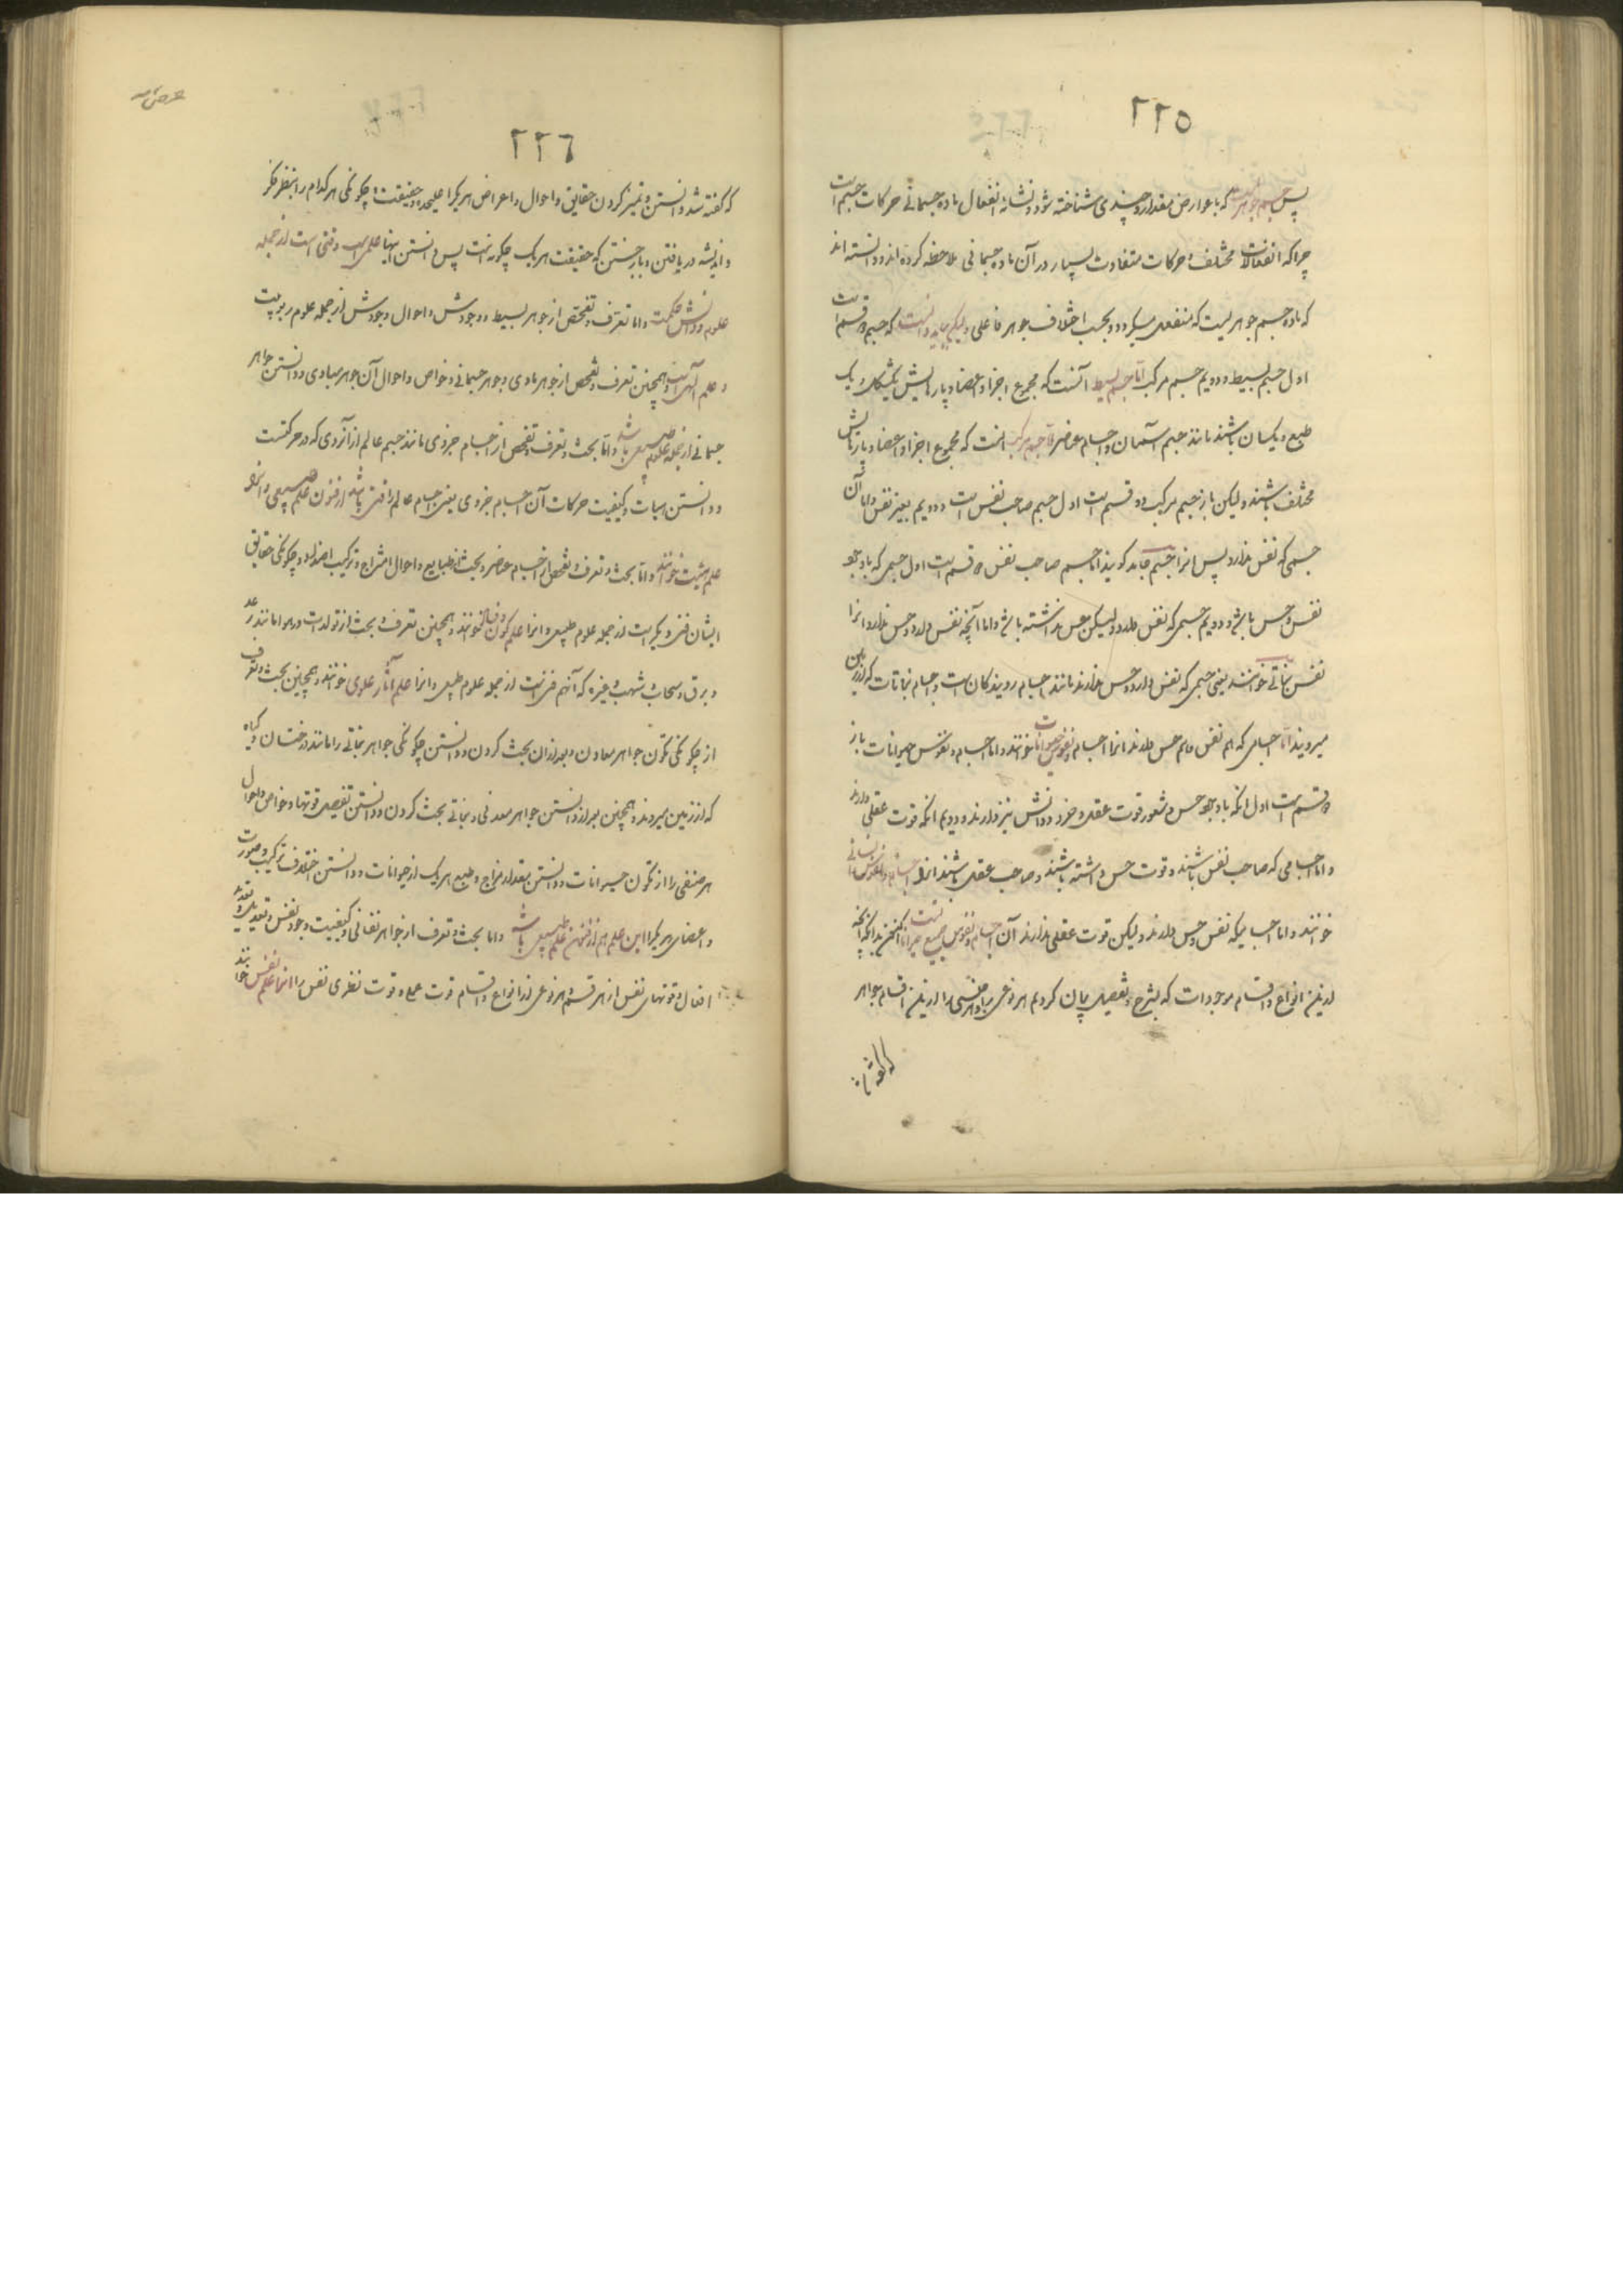 ٢٢٥
پس جسم جوهریست که با عوارض مقدار و چندی شناخته شود و نشانهٔ انفعال ماده جسمانی حرکات جسم است
چرا که انفعالات مختلف و حرکات متفاوت بسیار در آن ماده جسمانی ملاحظه کرده اند و دانسته اند
که ماده جسم جوهریست که منفعل میگردد و بحسب اختلاف جوهر فاعلی و لیکن باید دانست که جسم دو قسم است
اول جسم بسیط و دویم جسم مرکب اما جسم بسیط آنست که مجموع اجزا و اعضا و پارهایش یکشکل و یک
طبع و یکسان باشند مانند جسم آسمان و اجسام عناصر و اما جسم مرکب انست که مجموع اجزا و اعضا و پارهایش
مختلف باشند و لیکن باز جسم مرکب دو قسم است اول جسم صاحب نفس است و دویم بغیر نفس و اما آن
جسمی که نفس ندارد پس انرا جسم جامد گویند اما جسم صاحب نفس دو قسم است اول جسمی که باوجود
نفس و حس باشد و دویم جسمی که نفس دارد و لیکن حس نداشته باشد و اما آنچه نفس دارد و حس ندارد انرا
نفس نباتی خوانند یعنی جسمی که نفس دارد و حس ندارند مانند اجسام رویندکان است و اجسام نباتات که از زمین
میرویند اما اجسامی که هم نفس و هم حس دارند انرا اجسام و نفوس حیوانات خوانند و اما اجسام و نفوس حیوانات باز
دو قسم است اول انکه باوجود حس و شعور قوت عقل و خرد و دانش نیز دارند و دویم انکه قوت عقلی ندارند
و اما اجسامی که صاحب نفس باشند و قوت حس داشته باشند و صاحب عقل باشند انرا اجسام و نفوس انسانی
خوانند و اما اجسامیکه نفس و حس دارند و لیکن قوت عقلی ندارند آن اجسام و نفوس جمیع حیوانات است اکنون بدانکه آنچه
ازین انواع و اقسام موجودات که بشرح و تفصیل بیان کردیم هر نوعی را و هر جنسی را ازین اقسام جواهر
که گفته شد
٢٢٦
که گفته شد و دانستن و تمیز کردن حقایق و احوال و اعراض هر یکرا علیحده و حقیقت و چکونگی هر کدام را بنظر فکر
و اندیشه دریافتن و باز جستن که حقیقت هر یک چگونه است پس دانستن اینها علمی است و فنی است از جمله
علوم و دانش حکمت و اما تعرف و تفحص از جوهر بسیط و وجودش و احوال وجودش از جمله علوم ربوبیت
و علم الهی است و همچنین تعرف و تفحص از جوهر مادی و جوهر جسمانی و خواص و احوال آن جوهر مبادی و دانستن جواهر
جسمانی از جمله علوم طبیعی باشد و اما بحث و تعرف و تفحص از اجسام جزوی مانند جسم عالم از آنروی که در حرکتست
و دانستن هیات و کیفیت حرکات آن اجسام جزوی یعنی اجسام عالم را فنی باشد از فنون علم طبیعی و انرا
علم هیئت خوانند و اما بحث و تعرف و تفحص از اجسام عناصر و بحث از طبایع و احوال امتزاج و ترکیب اضداد و چکونگی حقایق
ایشان فنی دیکر است از جمله علوم طبیعی و انرا علم کون و فساد خوانند و همچنین تعرف و بحث از تولدات در هوا مانند رعد
و برق و سحاب و شهب و غیره که آنهم فنی است از جمله علوم طبیعی و انرا علم آثار علوی خوانند و همچنین بحث و تعرف
از چکونگی تکون جواهر معادن و بعد ازان بحث کردن و دانستن چکونگی جواهر نباتی را مانند درختان و کیاه
که از زمین میروند و همچنین بعد از دانستن جواهر معدنی و نباتی بحث کردن و دانستن تفصیل قوتها و خواص و احوال
هر صنفی را از تکون حیوانات و دانستن مقدار مزاج و طبع هر یک از حیوانات و دانستن اختلاف ترکیب و صورت
و اعضای هر یکرا این علم هم از فنون علم طبیعی باشد و اما بحث و تعرف از جواهر نفسانی و کیفیت وجود نفس و تعدید
افعال و قوتهای نفس از هر قسم و هر نوعی از انواع و اقسام قوت عملی و قوت نظری نفس را انرا علم نفس خوانند